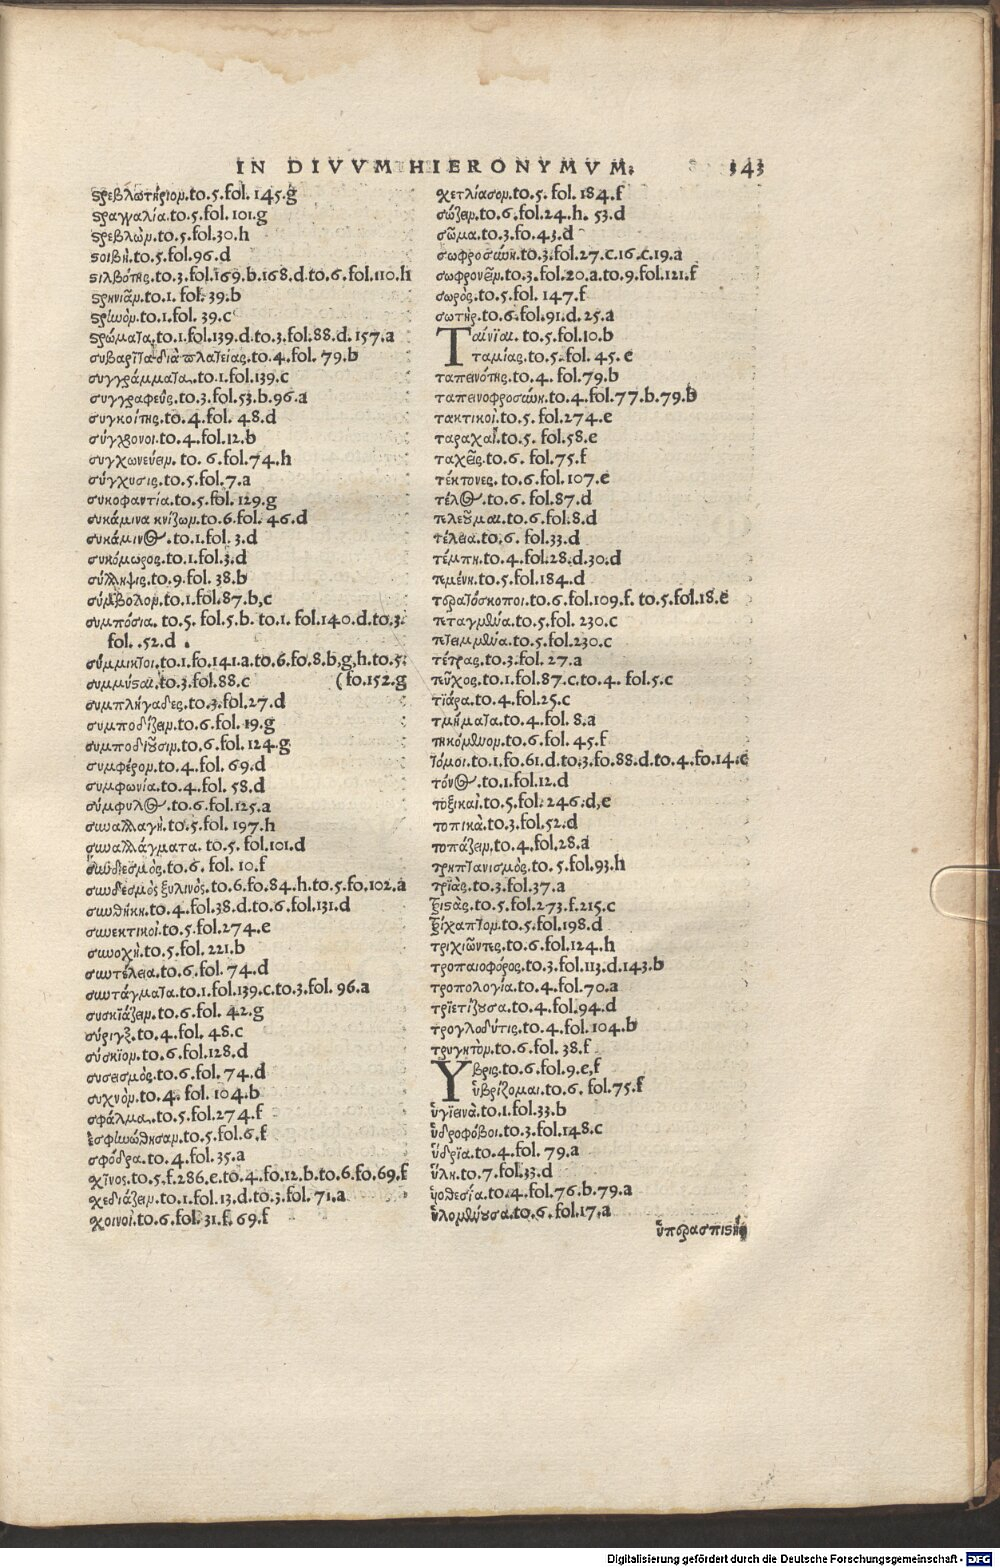 IN DIVVM HIERONYMVM. 343
στρεβλωτήριον.to.5.fol. 145.g
στραγγαλία.to.5.fol. 101.g
στρεβλὼν.to.5.fol.30.h
στοιβὴ.to.5.fol.96.d
στιλβότης.to.3.fol.169.b.168.d.to.6.fol.110.h
στρηνιᾶν.to.1. fol. 39.b
to.1.fol. 39.c
στρώματα.to.1.fol.139.d.to.3.fol.88.d. 157.a
συβαρῖται διὰ πλατείας.to.4.fol. 79.b
συγγράμματα.to.1.fol.139.c
συγγραφεὺς.to.3.fol.53.b.96.a
συγκοίτης.to.4.fol. 48.d
σύγχρονοι.to.4.fol.12.b
συγχωνεύειν. to. 6.fol.74.h
σύγχυσις.to.5.fol.7.a
συκοφαντία.to.5.fol. 129.g
συκάμινα κνίζων.to.6.fol. 46.d
συκάμινος.to.1.fol. 3.d
συκόμωρος.to.1.fol.3.d
σύλληψις.to.9.fol. 38.b
σύμβολον.to.1.fol.87.b,c
συμπόσια. to.5. fol.5.b. to.1. fol.140.d.to.3.
fol. .52.d .
σύμμικτοι.to.1.fo.141.a.to.6.fo.8.b,g,h.to.5.
συμμύσται.to.3.fol.88.c (fo.152.g
συμπληγάδες.to.3.fol.27.d
συμποδίζειν.to.6.fol. 19.g
συμποδιοῦσιν.to.6.fol. 124.g
συμφέρον.to.4.fol. 69.d
συμφωνία.to.4.fol. 58.d
σύμφυλος.to.6.fol.125.a
συναλλαγὴ.to.5.fol. 197.h
συναλλάγματα. to.5. fol.101.d
σύνδεσμὸς.to.6. fol. 10.f
συνδέσμὸς ξυλινὸς.to.6.fo.84.h.to.5.fo.102.a
συνθήκη.to.4.fol.38.d.to.6.fol.131.d
συνεκτικοὶ.to.5.fol.274.e
συνοχὴ.to.5.fol. 221.b
συντέλεια.to.6.fol. 74.d
συντάγματα.to.1.fol.139.c.to.3.fol. 96.a
συσκιάζειν.to.6.fol. 42.g
σύριγξ.to.4.fol. 48.c
σύσκιον.to.6.fol.128.d
συσεισμὸς.to.6.fol. 74.d
συχνὸν.to.4. fol. 104.b
σφάλμα.to.5.fol.274.f
ἐσφηνώθησαν.to.5.fol.6.f
σφόδρα.to.4.fol.35.a
σχῖνος.to.5.f.286.e.to.4.fo.12.b.to.6.fo.69.f
σχεδιάζειν.to.1.fol.13.d.to.3.fol. 71.a
σχοινοὶ.to.6.fol. 31.f. 69.f
σχετλίασον.to.5. fol. 184.f
σώζειν.to.6.fol.24.h. 53.d
σῶμα.to.3.fo.43.d
σωφροσύνη.to.3.fol.27.c.16.c.19.a
σωφρονεῖν.to.3.fol.20.a.to.9.fol.121.f
σωρὸς.to.5.fol. 147.f
σωτήρ.to.6.fol.91.d. 25.a
Ταίνίαι. to.5.fol.10.b
ταμίας.to.5.fol. 45. e
ταπεινότης.to.4. fol.79.b
ταπεινοφροσύνη.to.4.fol.77.b.79.b
τακτικοὶ.to.5. fol.274.e
ταραχαὶ.to.5. fol.58.e
ταχεῖς.to.6. fol.75.f
τέκτονες. to.6.fol.107.e
τέλος.to.6. fol.87.d
to.6.fol.8.d
τέλεια.to.6. fol.33.d
τέμπη.to.4.fol.28.d.30.d
τεμένη.to.5.fol.184.d
τερατόσκοποι.to.6.fol.109.f. to.5.fol.18.e
to.5.fol. 230.c
to.5.fol.230.c
τέτρας.to.3.fol. 27.a
τεῦχος.to.1.fol.87.c.to.4. fol.5.c
τιάρα.to.4.fol.25.c
τμήματα.to.4.fol. 8.a
τηκόμενον.to.6.fol. 45.f
τόμοι.to.1.fo.61.d.to.3.fo.88.d.to.4.fo.14.c
τόνος.to.1.fol.12.d
τοξικαὶ.to.5.fol. 246.d,e
τοπικὰ.to.3.fol.52.d
τοπάζειν.to.4.fol.28.a
to.5.fol.93.h
τρίὰς.to.3.fol.37.a
to.5.fol.273.f.215.c
τρίχαπτον.to.5.fol.198.d
τριχιῶντες.to.6.fol.124.h
τροπαιοφόρος.to.3.fol.113.d.143.b
τροπολογία.to.4.fol.70.a
τριετίζουσα.to.4.fol.94.d
τρογλοδύτις.to.4.fol. 104.b
τρυγητὸν.to.6.fol. 38.f
Υβρις.to.6.fol.9.e,f
ὑβρίζομαι.to.6. fol.75.f
ὑγιεινὰ.to.1.fol.33.b
ὑδροφόβοι.to.3.fol.148.c
ὑδρία.to.4.fol. 79.a
ὕλη.to.7.fol.33.d
ὑοθεσία.to.4.fol.76.b.79.a
to.6.fol.17.a
ὑπερασπιστὴς
Digitalisierung gefördert durch die Deutsche Forschungsgemeinschaft - DFG